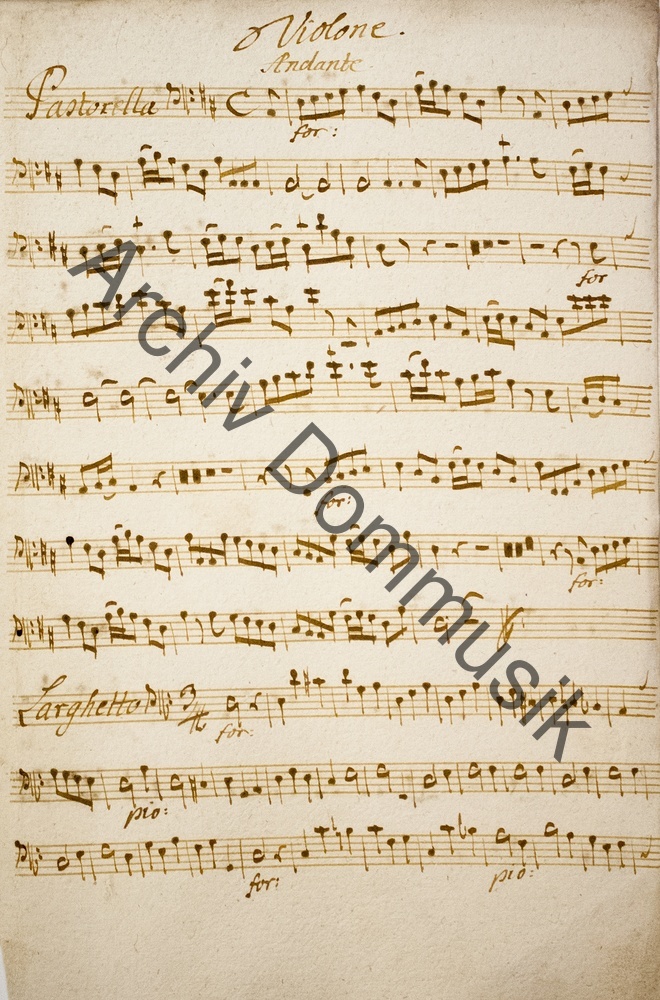 Violone.
Andante
Pastorella
for:
for
for:
for:
Larghetto 3/4
for:
pio:
for: pio:
Archiv Dommusik